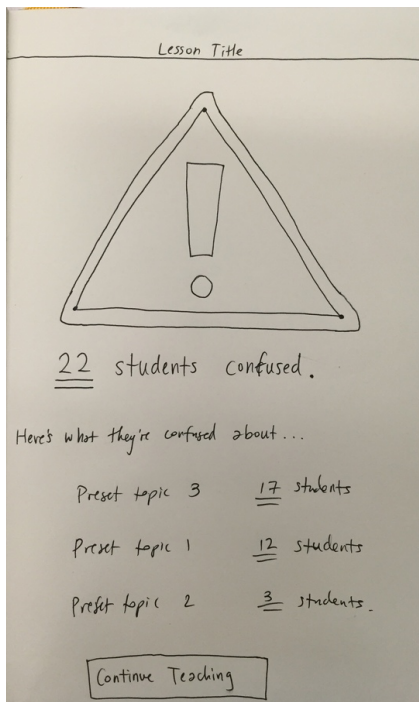 Lesson Title
!
22 students confused.
Here's what they're confused about...
Preset topic 3 17 students
Preset topic 1 12 students
Preset topic 2 3 students.
Continue Teaching